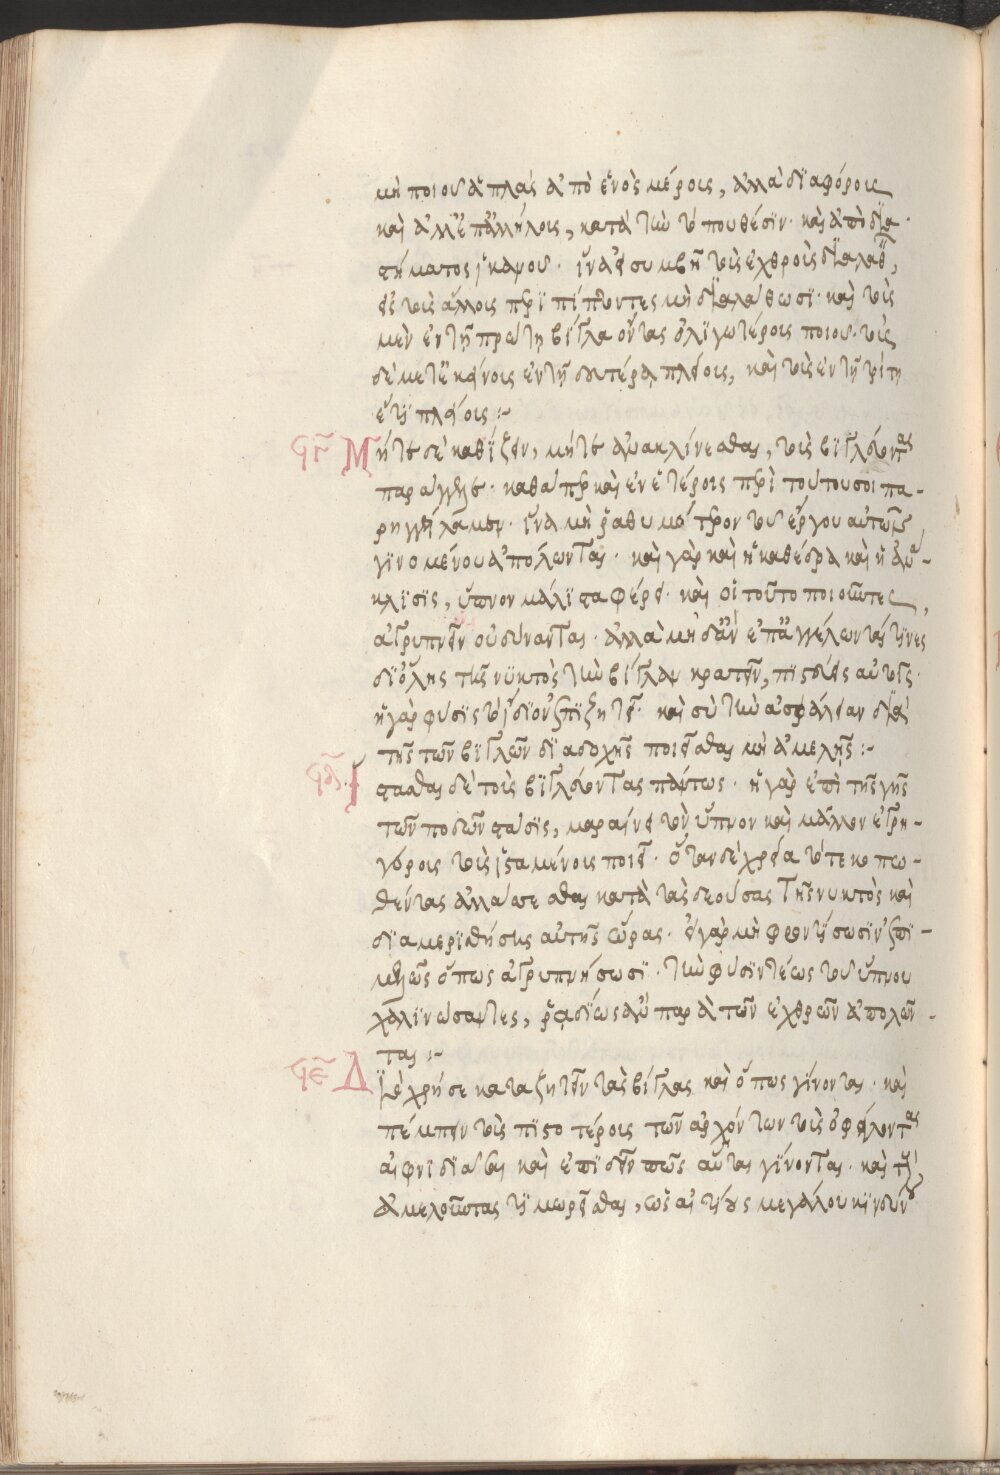 μὴ ποιοῦ ἁπλᾶς ἀπὸ ἑνὸς μέρους, ἀλλὰ διαφόρους
καὶ ἀλλεπαλλήλους, κατὰ τὴν ὑπουθέσιν· καὶ ἀπὸ δια
στήματος ἱκανοῦ· ἵνα εἰ συμβῆ τοὺς ἐχθροὺς διαλαθεῖν,
εἰς τοὺς ἄλλους περιπίπτοντες μὴ διαλάθωσι· καὶ τοὺς
μὲν ἐν τῇ πρώτη βίγλα ὄντας ὀλιγωτέρους ποιοῦ· τοὺς
δὲ μετ' ἐκείνους ἐν τῇ δευτέρα πλείους, καὶ τοὺς ἐν τῇ τρίτη
ἔτι πλείους :-
ϟγ Μήτε δὲ καθίζειν, μήτε ἀνακλίνεσθαι, τοὺς βιγλεύοντας
παράγγελε· καθάπερ καὶ ἐν ἑτέροις περὶ τούτου σοι πα-
ρηγγείλαμεν· ἵνα μὴ ῥαθυμότερον τοῦ ἔργου αὐτῶν
γινομένου ἀπολωνται· καὶ γὰρ καὶ ἡ καθέδρα καὶ ἡ ἀνά-
κλισις, ὕπνον μάλιστα φέρει· καὶ οἱ τοῦτο ποιοῦντες,
ἀγρυπνεῖν οὐ δύνανται· ἀλλὰ μηδ' ἂν ἐπαγγέλλωνταί τινες
δι' ὅλης τῆς νυκτὸς τὴν βίγλαν κρατεῖν, πιστεύεις αὐτοῖς·
ἡ γὰρ φύσις τὸ ἴδιον ἐπιζητεῖ· καὶ σὺ τὴν ἀσφάλειαν διὰ
τῆς τῶν βιγλῶν διαδοχῆς ποιεῖσθαι μὴ ἀμελῇς :-
ϟδ Ἵστασθαι δὲ τοὺς βιγλεύοντας πάντως· ἡ γὰρ ἐπὶ τῆς γῆς
τῶν ποδῶν στάσις, μαραίνει τὸν ὕπνον καὶ μᾶλλον ἐγρη-
γόρους τοὺς ἱσταμένους ποιεῖ· ὅταν δὲ χρεία τότε κοπω-
θέντας ἀλλάσσεσθαι κατὰ τὰς δεούσας τῆς νυκτὸς καὶ
διαμερισθήσεις αὐτῆς ὥρας· εἰ γὰρ μὴ φροντίσωσιν ἐπι-
μελῶς ὅπως ἀγρυπνήσωσι· τὴν φύσιν τέως τοῦ ὕπνου
χαλινώσαντες, ῥαδίως ἂν παρὰ τῶν ἐχθρῶν ἀπολῶν-
ται :-
ϟε Διὸ χρή σε καταζητεῖν τὰς βίγλας καὶ ὅπως γίνονται· καὶ
πέμπειν τοὺς πιστοτέρους τῶν ἀρχόντων τοὺς ὀφείλοντας
αἰφνιδιάσαι καὶ ἐπιδεῖν πῶς αὗται γίνονται· καὶ τοὺς
ἀμελοῦντας τιμωρεῖσθαι, ὡς αἰτίους μεγάλου κινδύνου